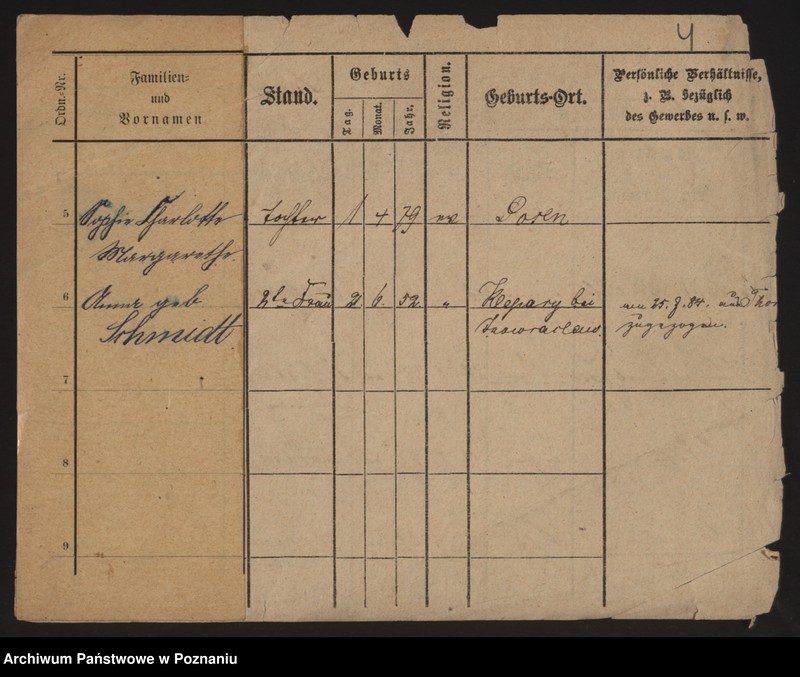 4
Ordn.-Nr.
Familien-
und
Vornamen
Stand.
Geburts
Tag.
Monat.
Jahr.
Religion.
Geburts-Ort.
Persönliche Verhältnisse,
z. B. bezüglich
des Gewerbes u. s. w.
5 Sophie Charlotte Tochter 1 4 79 ev Posen
Margarethe
6 Anna geb 2te Frau 2. 6. 52 " bei am 25. 7. 84. aus Thor
Schmidt Inowraclaw. zugezogen.
7
8
9
Archiwum Państwowe w Poznaniu